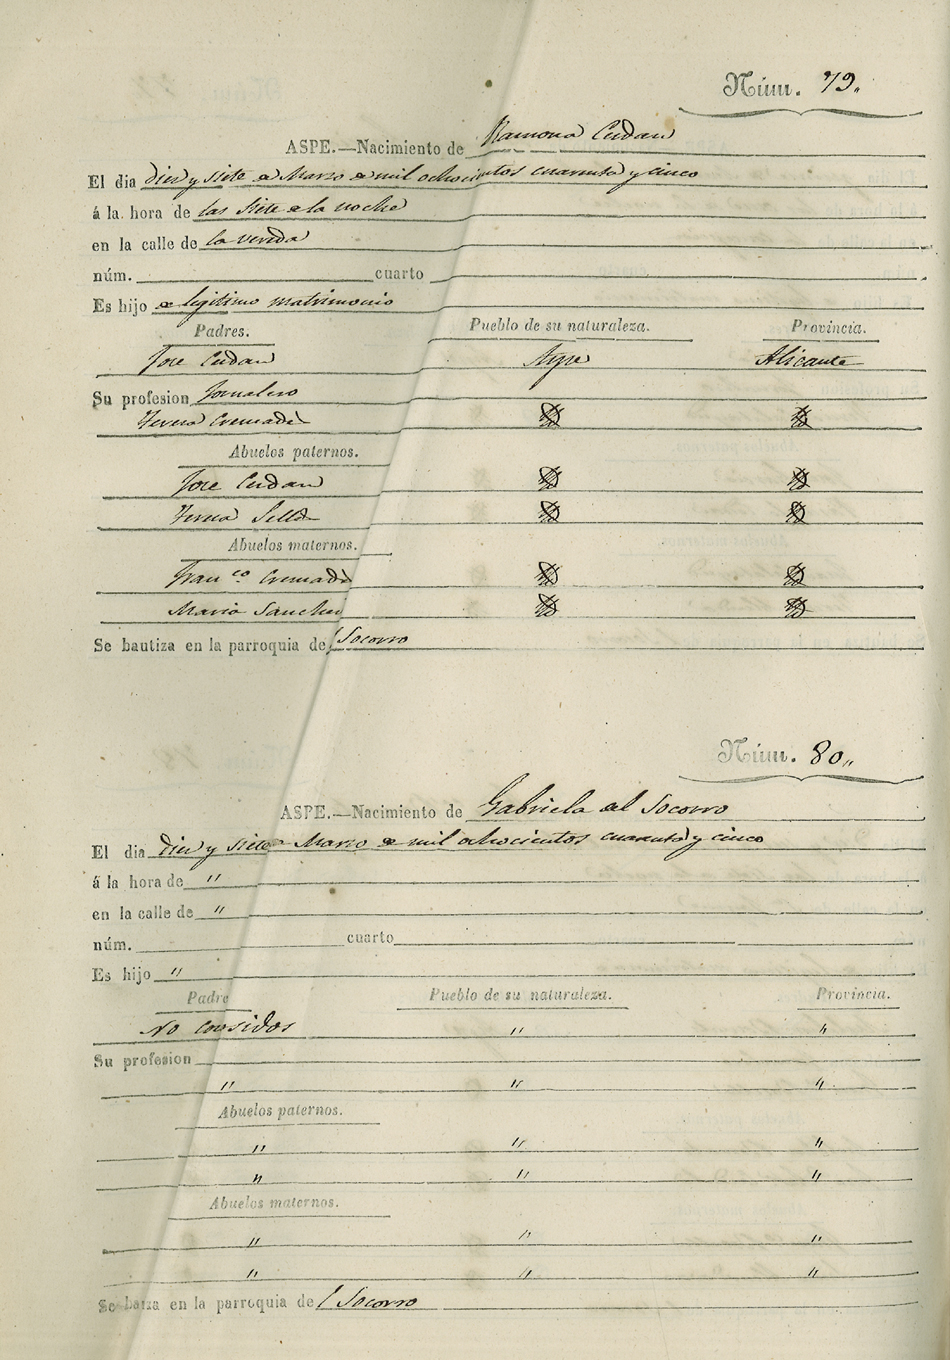 Núm. 79.
ASPE.—Nacimiento de Ramona Cerdan
El dia diez y siete de Marzo de mil ochocientos cuarenta y cinco
á la hora de las siete de la noche
en la calle de la vereda
núm. cuarto
Es hijo de legitimo matrimonio
Padres. Pueblo de su naturaleza. Provincia.
Jose Cerdan Aspe Alicante
Su profesion Jornalero
Teresa Cremades
Abuelos paternos.
Jose Cerdan
Teresa
Abuelos maternos.
Fran.co Cremades
Maria Sanchez
Se bautiza en la parroquia de Socorro
Núm. 80,,
ASPE.—Nacimiento de Gabriela del Socorro
El dia diez y siete de Marzo de mil ochocientos cuarenta y cinco
á la hora de "
en la calle de "
núm. cuarto
Es hijo "
Padre Pueblo de su naturaleza. Provincia.
No considos " "
Su profesion
" " "
Abuelos paternos.
" " "
" " "
Abuelos maternos.
" " "
" " "
Se batza en la parroquia de Socorro